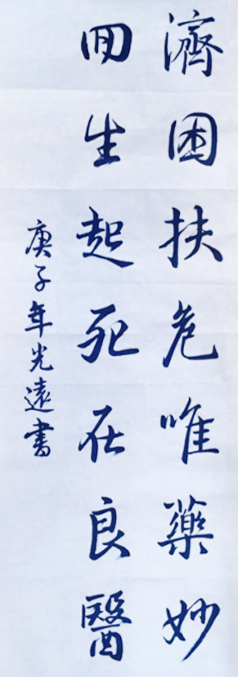 濟困扶危唯藥妙
回生起死在良醫
庚子年光遠書